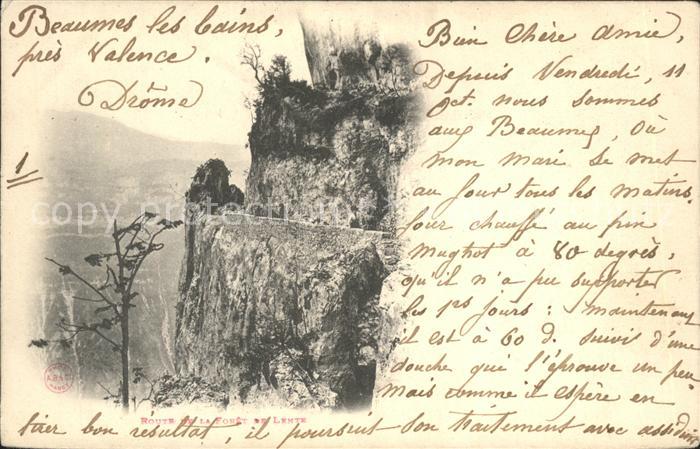 Beaumes les bains,
près Valence.
Drôme
1
Bien Chère Amie,
Depuis Vendredi, 11
Oct. nous sommes
aux Beaumes, Où
mon mari se met
au four tous les matins.
four chauffé au pin
Mughot à 80 degrès,
qu'il n'a pu supporter
les 1rs jours : maintenant
il est à 60 d. suivis d'une
douche qui l'éprouve un peu
Mais comme il espère en
tirer bon résultat, il poursuit son traitement avec assidui
ROUTE DE LA FORÊT DE LENTE
copyprotection